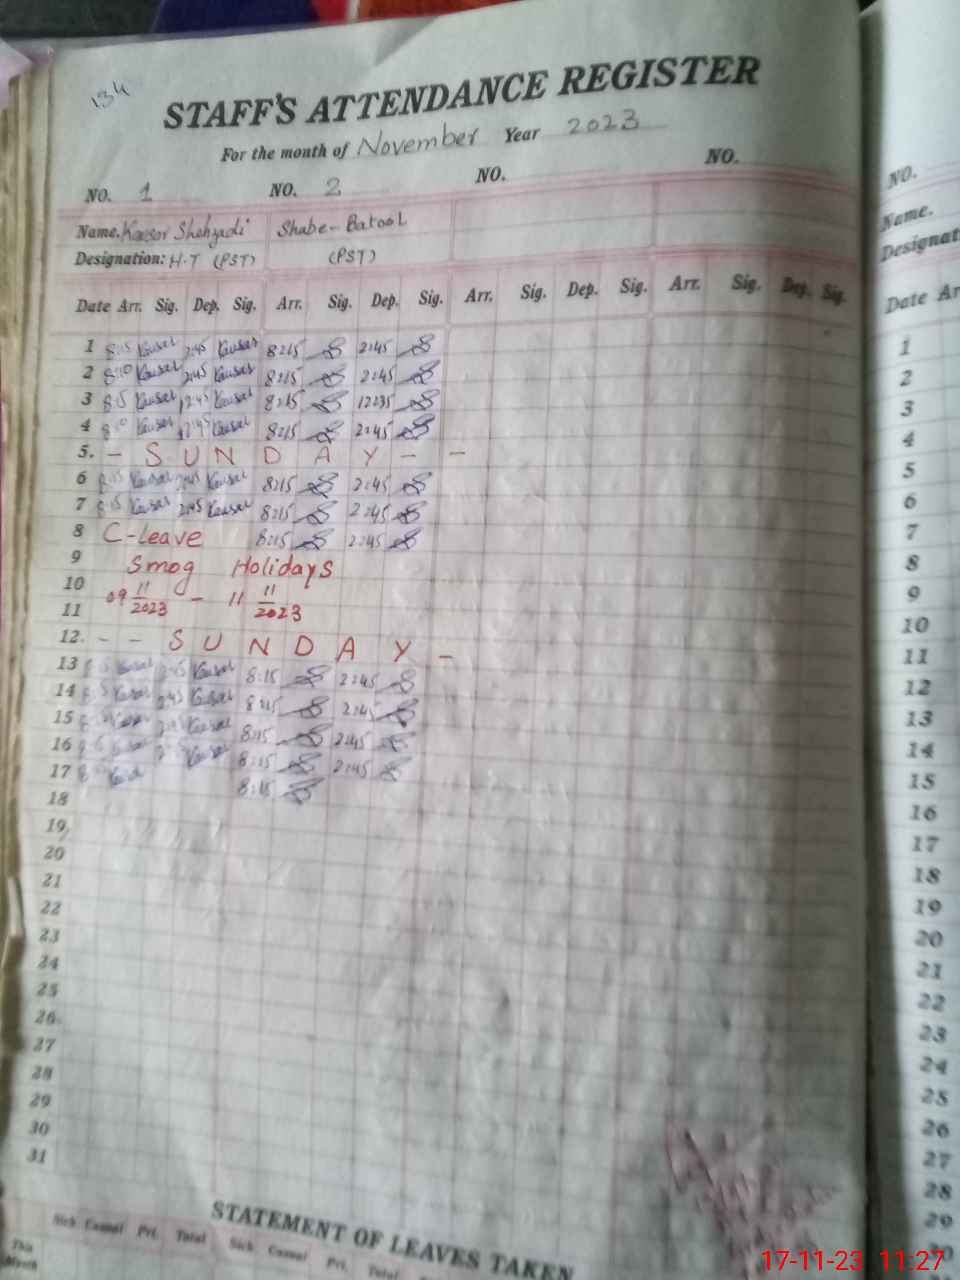 134
STAFF'S ATTENDANCE REGISTER
For the month of November Year 2023
NO. 1 NO. 2 NO. NO.
Name. Kausor Shehzadi Shabe-Batool
Designation: H.T (PST) (PST)
Date Arr. Sig. Dep. Sig. Arr. Sig. Dep. Sig. Arr. Sig. Dep. Sig. Arr. Sig. Dep. Sig.
1 8:15 Kausar 2:45 Kausar 8:15 2:45
2 8:10 Kausar 2:45 Kausar 8:15 2:45
3 8:15 Kausar 12:45 Kausar 8:15 12:35
4 8:10 Kausar 12:45 Kausar 8:15 2:45
5. - SUNDAY - -
6 8:15 Kausar 2:45 Kausar 8:15 2:45
7 8:15 Kausar 2:45 Kausar 8:15 2:45
8 C-Leave 8:15 2:45
9 Smog Holidays
10 09 11/2023 - 11 11/2023
11
12. - - SUNDAY -
13 Kausar 2:45 Kausar 8:15 2:45
14 Kausar 2:45 Kausar 8:15 2:45
15 Kausar 2:45 Kausar 8:15 2:45
16 Kausar Kausar 8:15 2:45
17 Kausar 8:15
18
19.
20
21
22
23
24
25
26.
27
28
29
30
31
STATEMENT OF LEAVES TAKEN
Sick Casual Pri. Total Sick Casual Pri. Total
This Month
NO.
Name.
Date
1
2
3
4
5
6
7
8
9
10
11
12
13
14
15
16
17
18
19
20
21
22
23
24
25
26
27
28
29
17-11-23 11:27